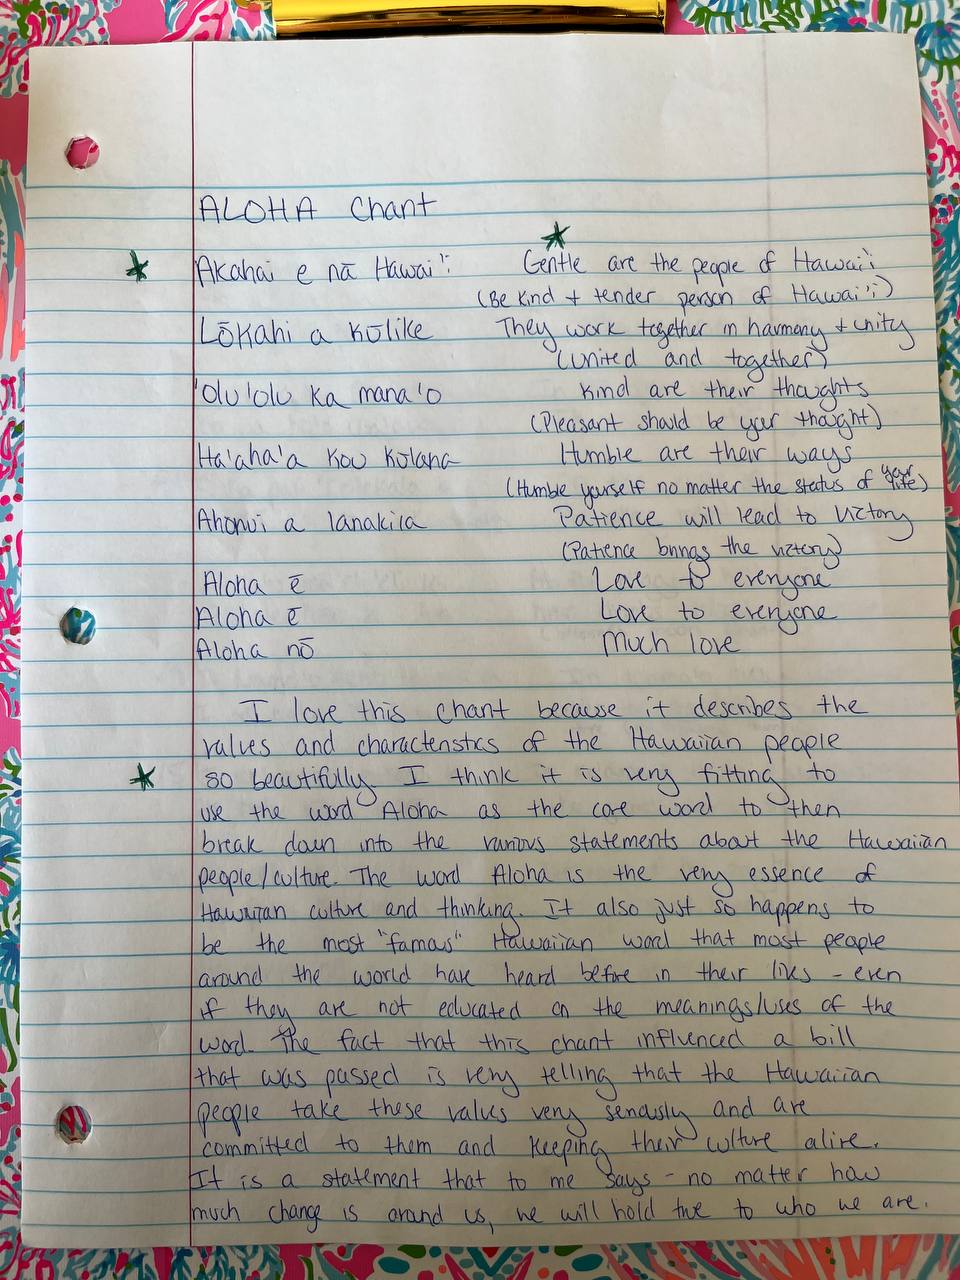 ALOHA Chant
Akahai e nā Hawai'i Gentle are the people of Hawai'i
(Be kind + tender person of Hawai'i)
Lōkahi a kūlike They work together in harmony + unity
(United and together)
'Olu'olu ka mana'o Kind are their thoughts
(Pleasant should be your thought)
Ha'aha'a kou kūlana Humble are their ways
(Humble yourself no matter the status of your life)
Ahonui a lanakila Patience will lead to victory
(Patience brings the victory)
Aloha ē Love to everyone
Aloha ē Love to everyone
Aloha nō Much love
I love this chant because it describes the
values and characteristics of the Hawaiian people
so beautifully. I think it is very fitting to
use the word Aloha as the core word to then
break down into the various statements about the Hawaiian
people/culture. The word Aloha is the very essence of
Hawaiian culture and thinking. It also just so happens to
be the most "famous" Hawaiian word that most people
around the world have heard before in their lives - even
if they are not educated on the meanings/uses of the
word. The fact that this chant influenced a bill
that was passed is very telling that the Hawaiian
people take these values very seriously and are
committed to them and keeping their culture alive.
It is a statement that to me says - no matter how
much change is around us, we will hold true to who we are.